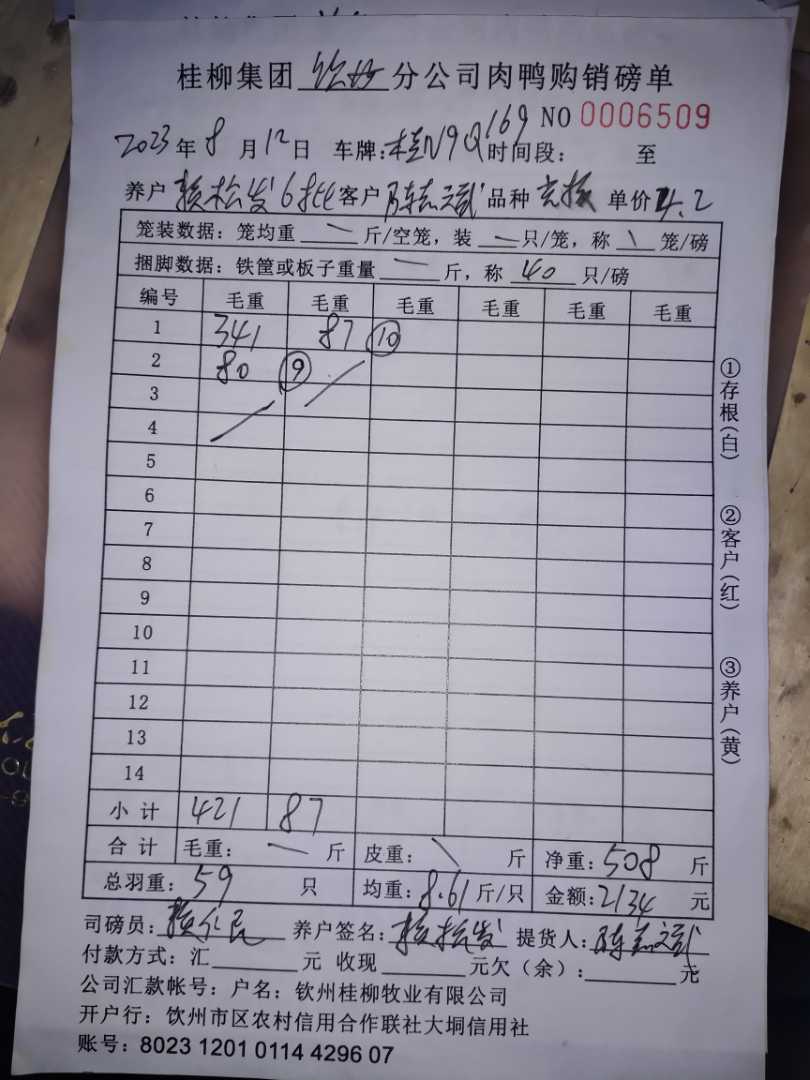 桂柳集团 钦州 分公司肉鸭购销磅单
NO 0006509
2023 年 8 月 12 日 车牌:桂N9Q169 时间段: 至
养户 松发 6批 客户 陈志斌 品种 单价 4.2
笼装数据:笼均重 一 斤/空笼,装 一 只/笼,称 \ 笼/磅
捆脚数据:铁筐或板子重量 一 斤,称 40 只/磅
编号 毛重 毛重 毛重 毛重 毛重 毛重
1 341 87 ⑩
2 80 ⑨
3
4
5
6
7
8
9
10
11
12
13
14
小计 421 87
合计 毛重: 一 斤 皮重: \ 斤 净重: 508 斤
总羽重: 59 只 均重: 8.61 斤/只 金额: 2134 元
司磅员: 养户签名: 松发 提货人: 陈志斌
付款方式:汇 元 收现 元欠(余): 元
公司汇款帐号:户名:钦州桂柳牧业有限公司
开户行:饮州市区农村信用合作联社大垌信用社
账号:8023 1201 0114 4296 07
①存根(白)
②客户(红)
③养户(黄)